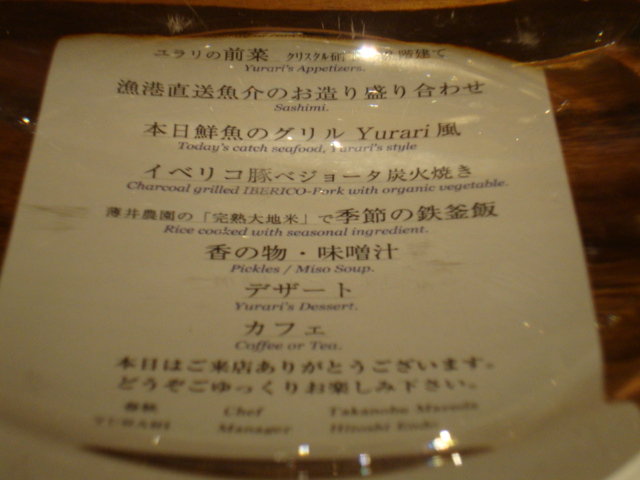 ユラリの前菜 クリスタル 階建て
Yurari's Appetizers.
漁港直送魚介のお造り盛り合わせ
Sashimi.
本日鮮魚のグリル Yurari風
Today's catch seafood, Yurari's style
イベリコ豚ベジョータ炭火焼き
Charcoal grilled IBERICO-Pork with organic vegetable.
薄井農園の「完熟大地米」で季節の鉄釜飯
Rice cooked with seasonal ingredient.
香の物・味噌汁
Pickles / Miso Soup.
デザート
Yurari's Dessert.
カフェ
Coffee or Tea.
本日はご来店ありがとうございます。
どうぞごゆっくりお楽しみ下さい。
Chef Takanobu
Manager Hitoshi